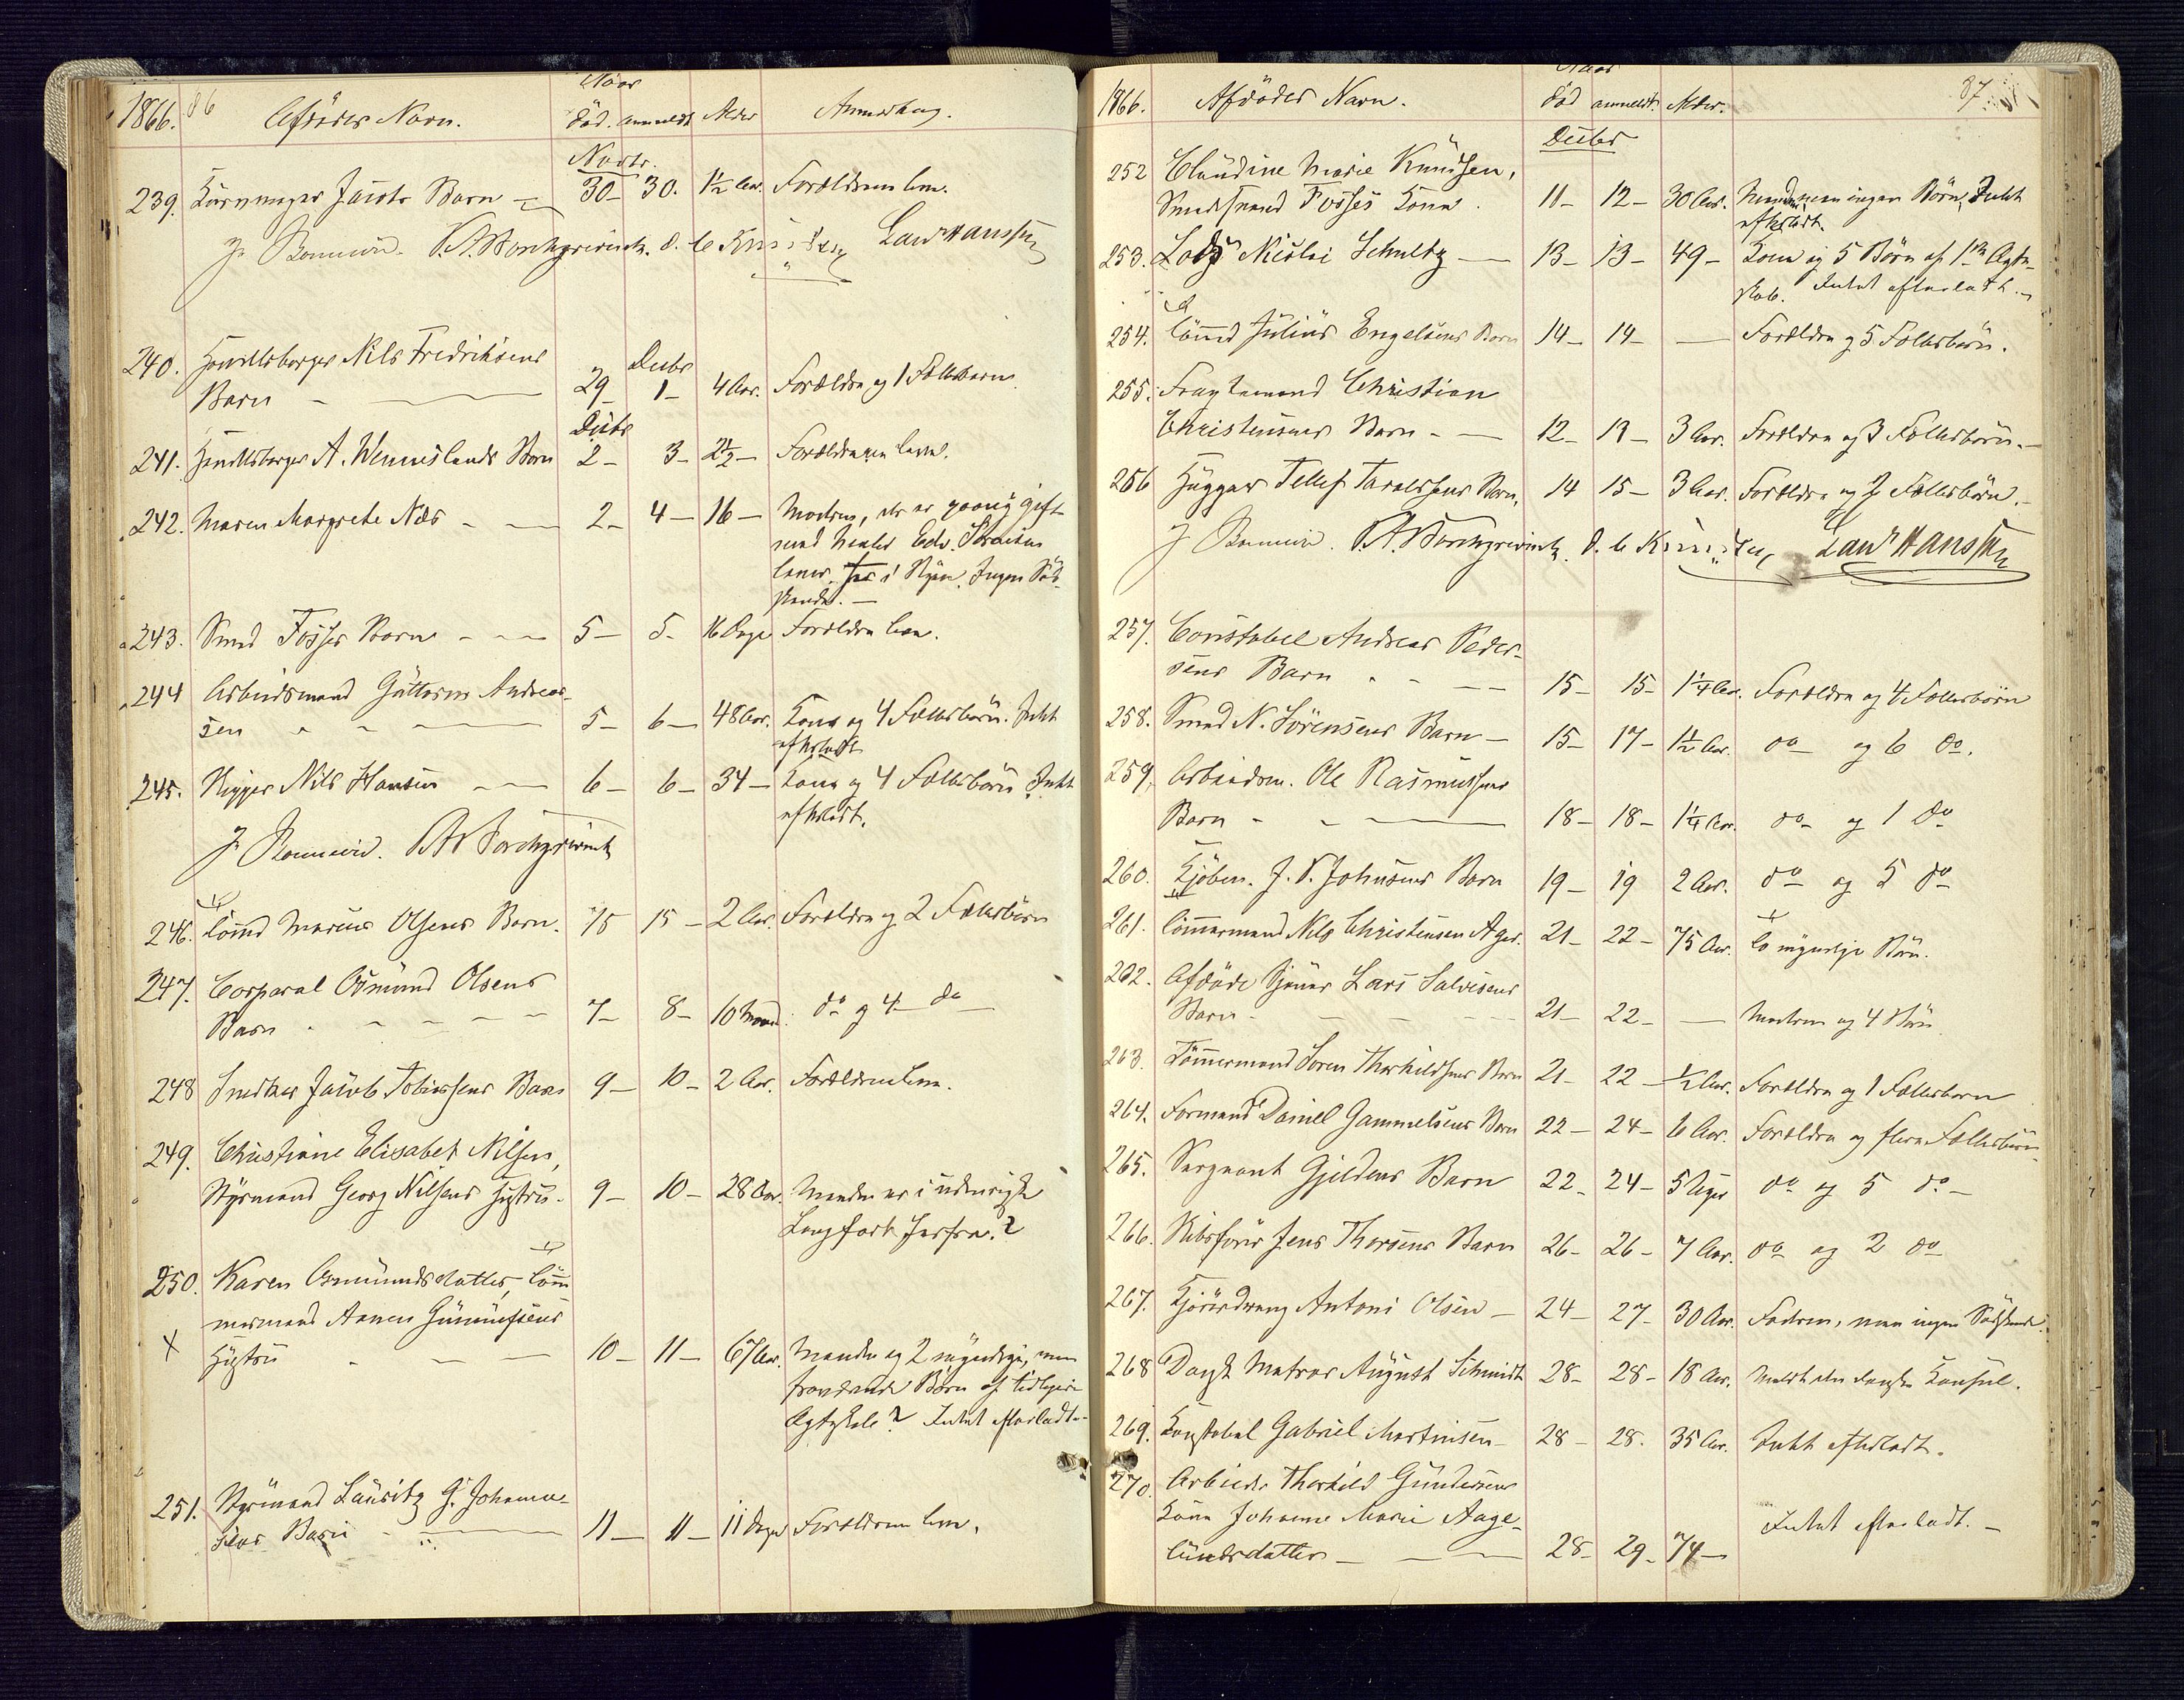 1866. 86 Afdødes Navn. Naar død. anmeldt Alder Anmærkning.
Novbr.
239. Kurvmager Jacobs Barn 30 - 30. 1½ Aar. Forældrene leve.
P. A. Borchgrevink. Laur Hanssen
240. Handelsborger Nils Fredriksens
Decbr
Barn 29 - 1 - 4 Aar. Forældre og 1 Fællesbarn
Decbr
241. Handelsborger A. Wenneslands Barn 2 - 3 - 2½ - Forældrene leve.
242. Maren Margrete Næs 2 - 4 - 16 - Modren, der er gift
med Edv. Sørensen
lever. Ingen Sød-
skende.
243. Smed Fosses Barn 5 - 5 - 16 Dage Forældre leve.
244 Arbeidsmand Guttorm Andreas-
sen 5 - 6 - 48 Aar. Kone og 4 Fællesbørn. Intet
efterladt
245. Rigger Nils Hansen 6 - 6 - 34 - Kone og 4 Fællesbørn Intet
efterladt.
P. A. Borchgrevink
246. Tømmd Marius Olsens Barn. 15 15 - 2 Aar. Forældre og 2 Fællesbørn
247. Corporal Osmund Olsens
Barn 7 - 8 - 10 Maand. do og 4 do
248 Snedker Jacob Tobiassens Barn 9 - 10 - 2 Aar. Forældrene leve.
249. Christiane Elisabet Nilsen,
Styrmand Georg Nilsens Hustru. 9 - 10 - 28 Aar. Manden er i udenrigsk
Langfart herfra.?
250. Karen Osmundsdatter, Tøm
mermand Aanen Gunnufsens
X Hustru 10 - 11 - 67 Aar. Manden og 2 myndige, men
fraværende Børn af tidligere
Ægteskab? Intet efterladt.
251. Styrmand Lauritz G. Johanne-
sens Barn 11 - 11 - 11 Dage Forældrene leve.
1866. Afdødes Navn. Naar død anmeldt. Alder. 87
Decbr
252 Claudine Marie Knudsen,
Smedsvend Fosses Kone. 11 - 12 - 30 Aar. Manden, men ingen Børn, Intet
efterladt.
253. Lods Nicolai Schultz 13 - 13 - 49 - Kone og 5 Børn af 1ste Ægte-
skab. Intet efterladt.
254. Tømmd Julius Engelsens Barn 14 - 14 - Forældre og 5 Fællesbørn.
255. Fragtemand Christian
Christensens Barn 12 - 13 - 3 Aar. Forældre og 3 Fællesbørn.
256 Hugger Tellef Taraldsens Barn. 14 15 - 3 Aar. Forældre og 2 Fællesbørn.
P. A. Borchgrevink. Laur Hanssen
257. Constabel Andreas Peder-
sens Barn 15 - 15 - 1¼ Aar. Forældre og 4 Fællesbørn
258. Smed N. Sørensens Barn 15 - 17 - 1½ Aar. do og 6 do.
259. Arbeidsm. Ole Rasmussens
Barn 18 - 18 - 1¼ Aar. do og 1 do
260. Kjøbm. J. P. Johnsens Barn 19 - 19 2 Aar. do og 5 do
261. Tømmermand Nils Christensen Ager. 21 - 22 - 75 Aar. To myndige Børn.
262. Afdøde Sjømd Lars Salvesens
Barn 21 - 22 - Modren og 4 Børn
263. Tømmermand Søren Thorkildsens Barn 21 - 22 - ½ Aar. Forældre og 1 Fællesbarn
264. Formand Daniel Gammelsens Barn 22 - 24 - 6 Aar. Forældre og flere Fællesbørn
265. Sergeant Gjeldens Barn 22 - 24 - 5 Uger do og 5 do
266. Skibsfører Jens Thorsens Barn 26 - 26 - 7 Aar. do og 2 do
267. Kjøredreng Antoni Olsen 24 - 27 - 30 Aar. Fadren, men ingen Sødskende.
268 Dansk Matros August Schmidt 28 - 28 - 18 Aar. Meldt den danske Konsul.
269. Konstabel Gabriel Martinsen 28 - 28. 35 Aar. Intet efterladt.
270. Arbeider Thorkild Gundersens
Kone Johanne Marie Aage-
lundsdatter 28 - 29 - 74 - Intet efterladt.